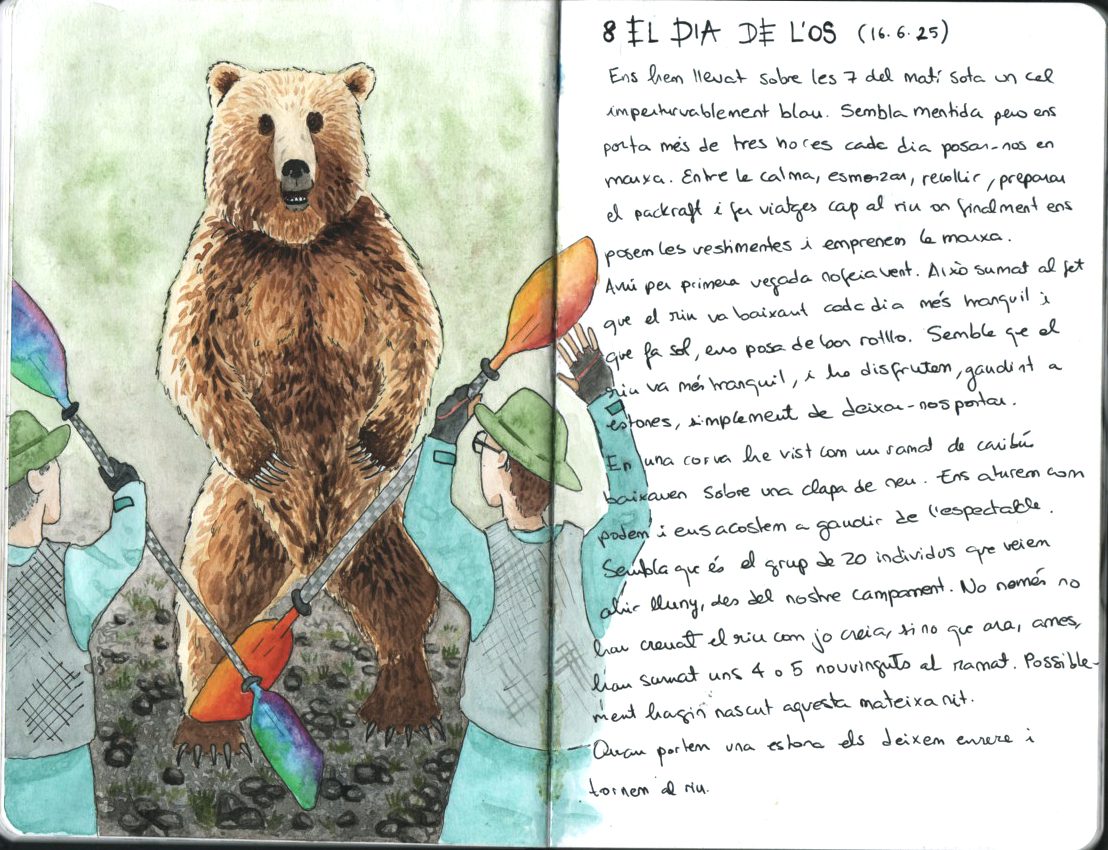 8 EL DIA DE L'OS (16.6.25)
Ens hem llevat sobre les 7 del matí sota un cel
imperturvablement blau. Sembla mentida pero ens
porta més de tres hores cada dia posar-nos en
marxa. Entre la calma, esmorzar, recollir, preparar
el packraft i fer viatges cap al riu on finalment ens
posem les vestimentes i emprenem la marxa.
Avui per primera vegada no feia vent. Això sumat al fet
que el riu va baixant cada dia més tranquil i
que fa sol, ens posa de bon rotllo. Sembla que el
riu va més tranquil, i ho disfrutem, gaudint a
estones, simplement de deixar-nos portar.
En una corva he vist com un ramat de caribú
baixaven sobre una clapa de neu. Ens aturem com
podem i ens acostem a gaudir de l'espectable.
Sembla que és el grup de 20 individus que veiem
ahir lluny, des del nostre campament. No només no
han creuat el riu com jo creia, si no que ara, a més,
han sumat uns 4 o 5 nouvinguts al ramat. Possible-
ment hagin nascut aquesta mateixa nit.
Quan portem una estona els deixem enrere i
tornem al riu.